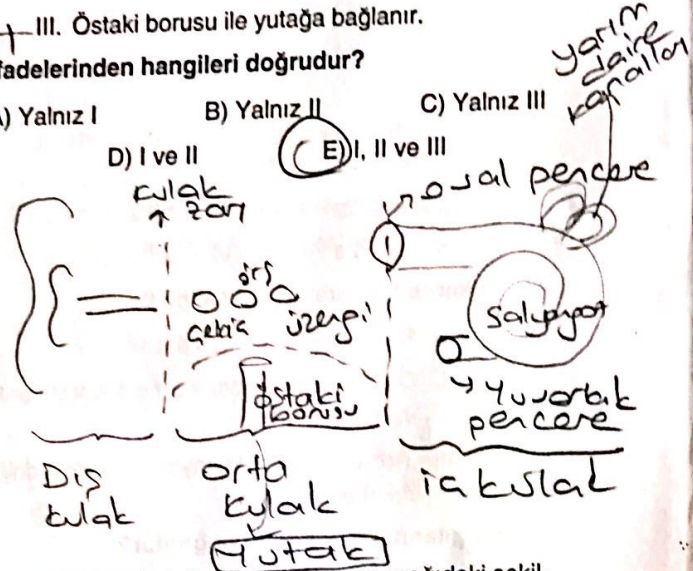 III. Östaki borusu ile yutağa bağlanır.
fadelerinden hangileri doğrudur?
A) Yalnız I B) Yalnız II C) Yalnız III
D) I ve II E) I, II ve III
yarım
daire
kanalları
kulak
zarı
oval pencere
örs
çekiç üzengi
salyangoz
östaki
borusu
yuvarlak
pencere
Dış
kulak
orta
kulak
iç kulak
Yutak